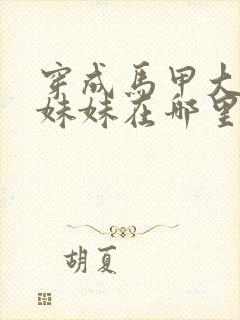 穿成馬甲大
妹妹在哪里
胡夏